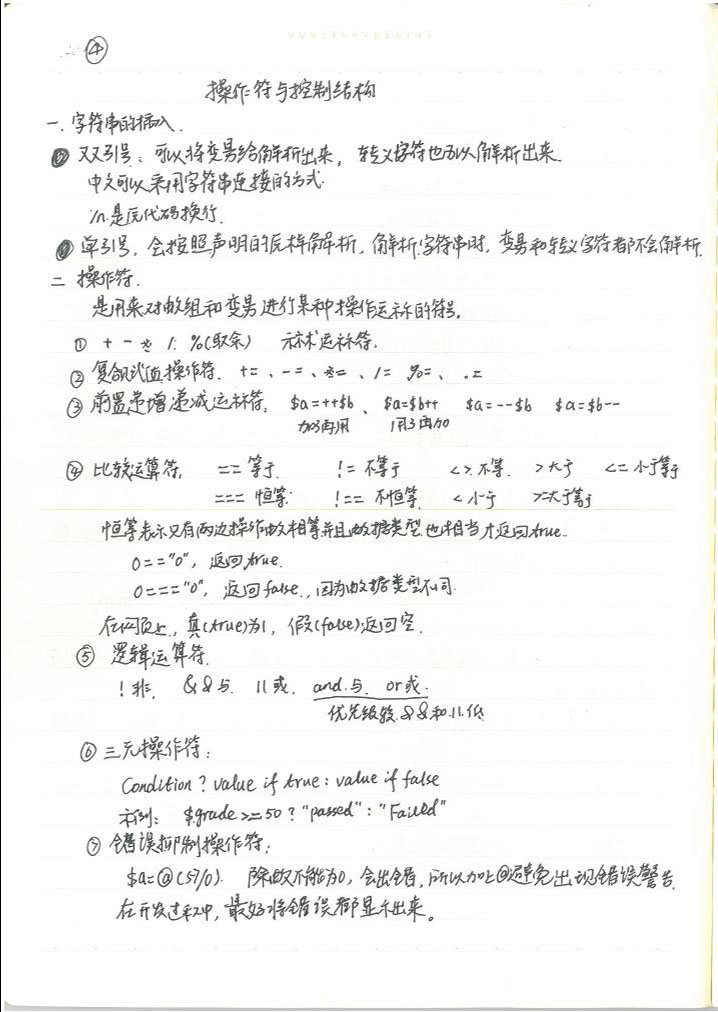 ④
操作符与控制结构
一.字符串的插入.
① 双引号:可以将变量给解析出来,转义字符也可以解析出来.
中文可以采用字符串连接的方式.
\n是原代码换行.
② 单引号,会按照声明的原样解析,解析字符串时,变量和转义字符都不会解析.
二 操作符.
是用来对数组和变量进行某种操作运算的符号.
① + - * /. %(取余) 算术运算符.
② 复合赋值操作符. += 、-= 、*= 、/= 、%= 、.=
③ 前置递增递减运算符. $a=++$b 、 $a=$b++ $a=--$b $a=$b--
加了再用 用了再加
④ 比较运算符. == 等于. != 不等于 <> 不等. > 大于 <= 小于等于
=== 恒等. !== 不恒等. < 小于 >=大于等于
恒等表示只有两边操作数相等并且数据类型也相当才返回true.
0=="0", 返回true.
0==="0", 返回false.,因为数据类型不同.
在网页上,真(true)为1,假(false)返回空.
⑤ 逻辑运算符.
! 非. &&与. ||或. and.与. or或.
优先级较.&&和.||.低
⑥ 三元操作符:
Condition ? value if true : value if false
示例: $grade>=50 ? "passed" : "Failed"
⑦ 错误抑制操作符:
$a=@(57/0). 除数不能为0,会出错,所以加上@避免出现错误警告.
在开发过程中,最好将错误都显示出来。